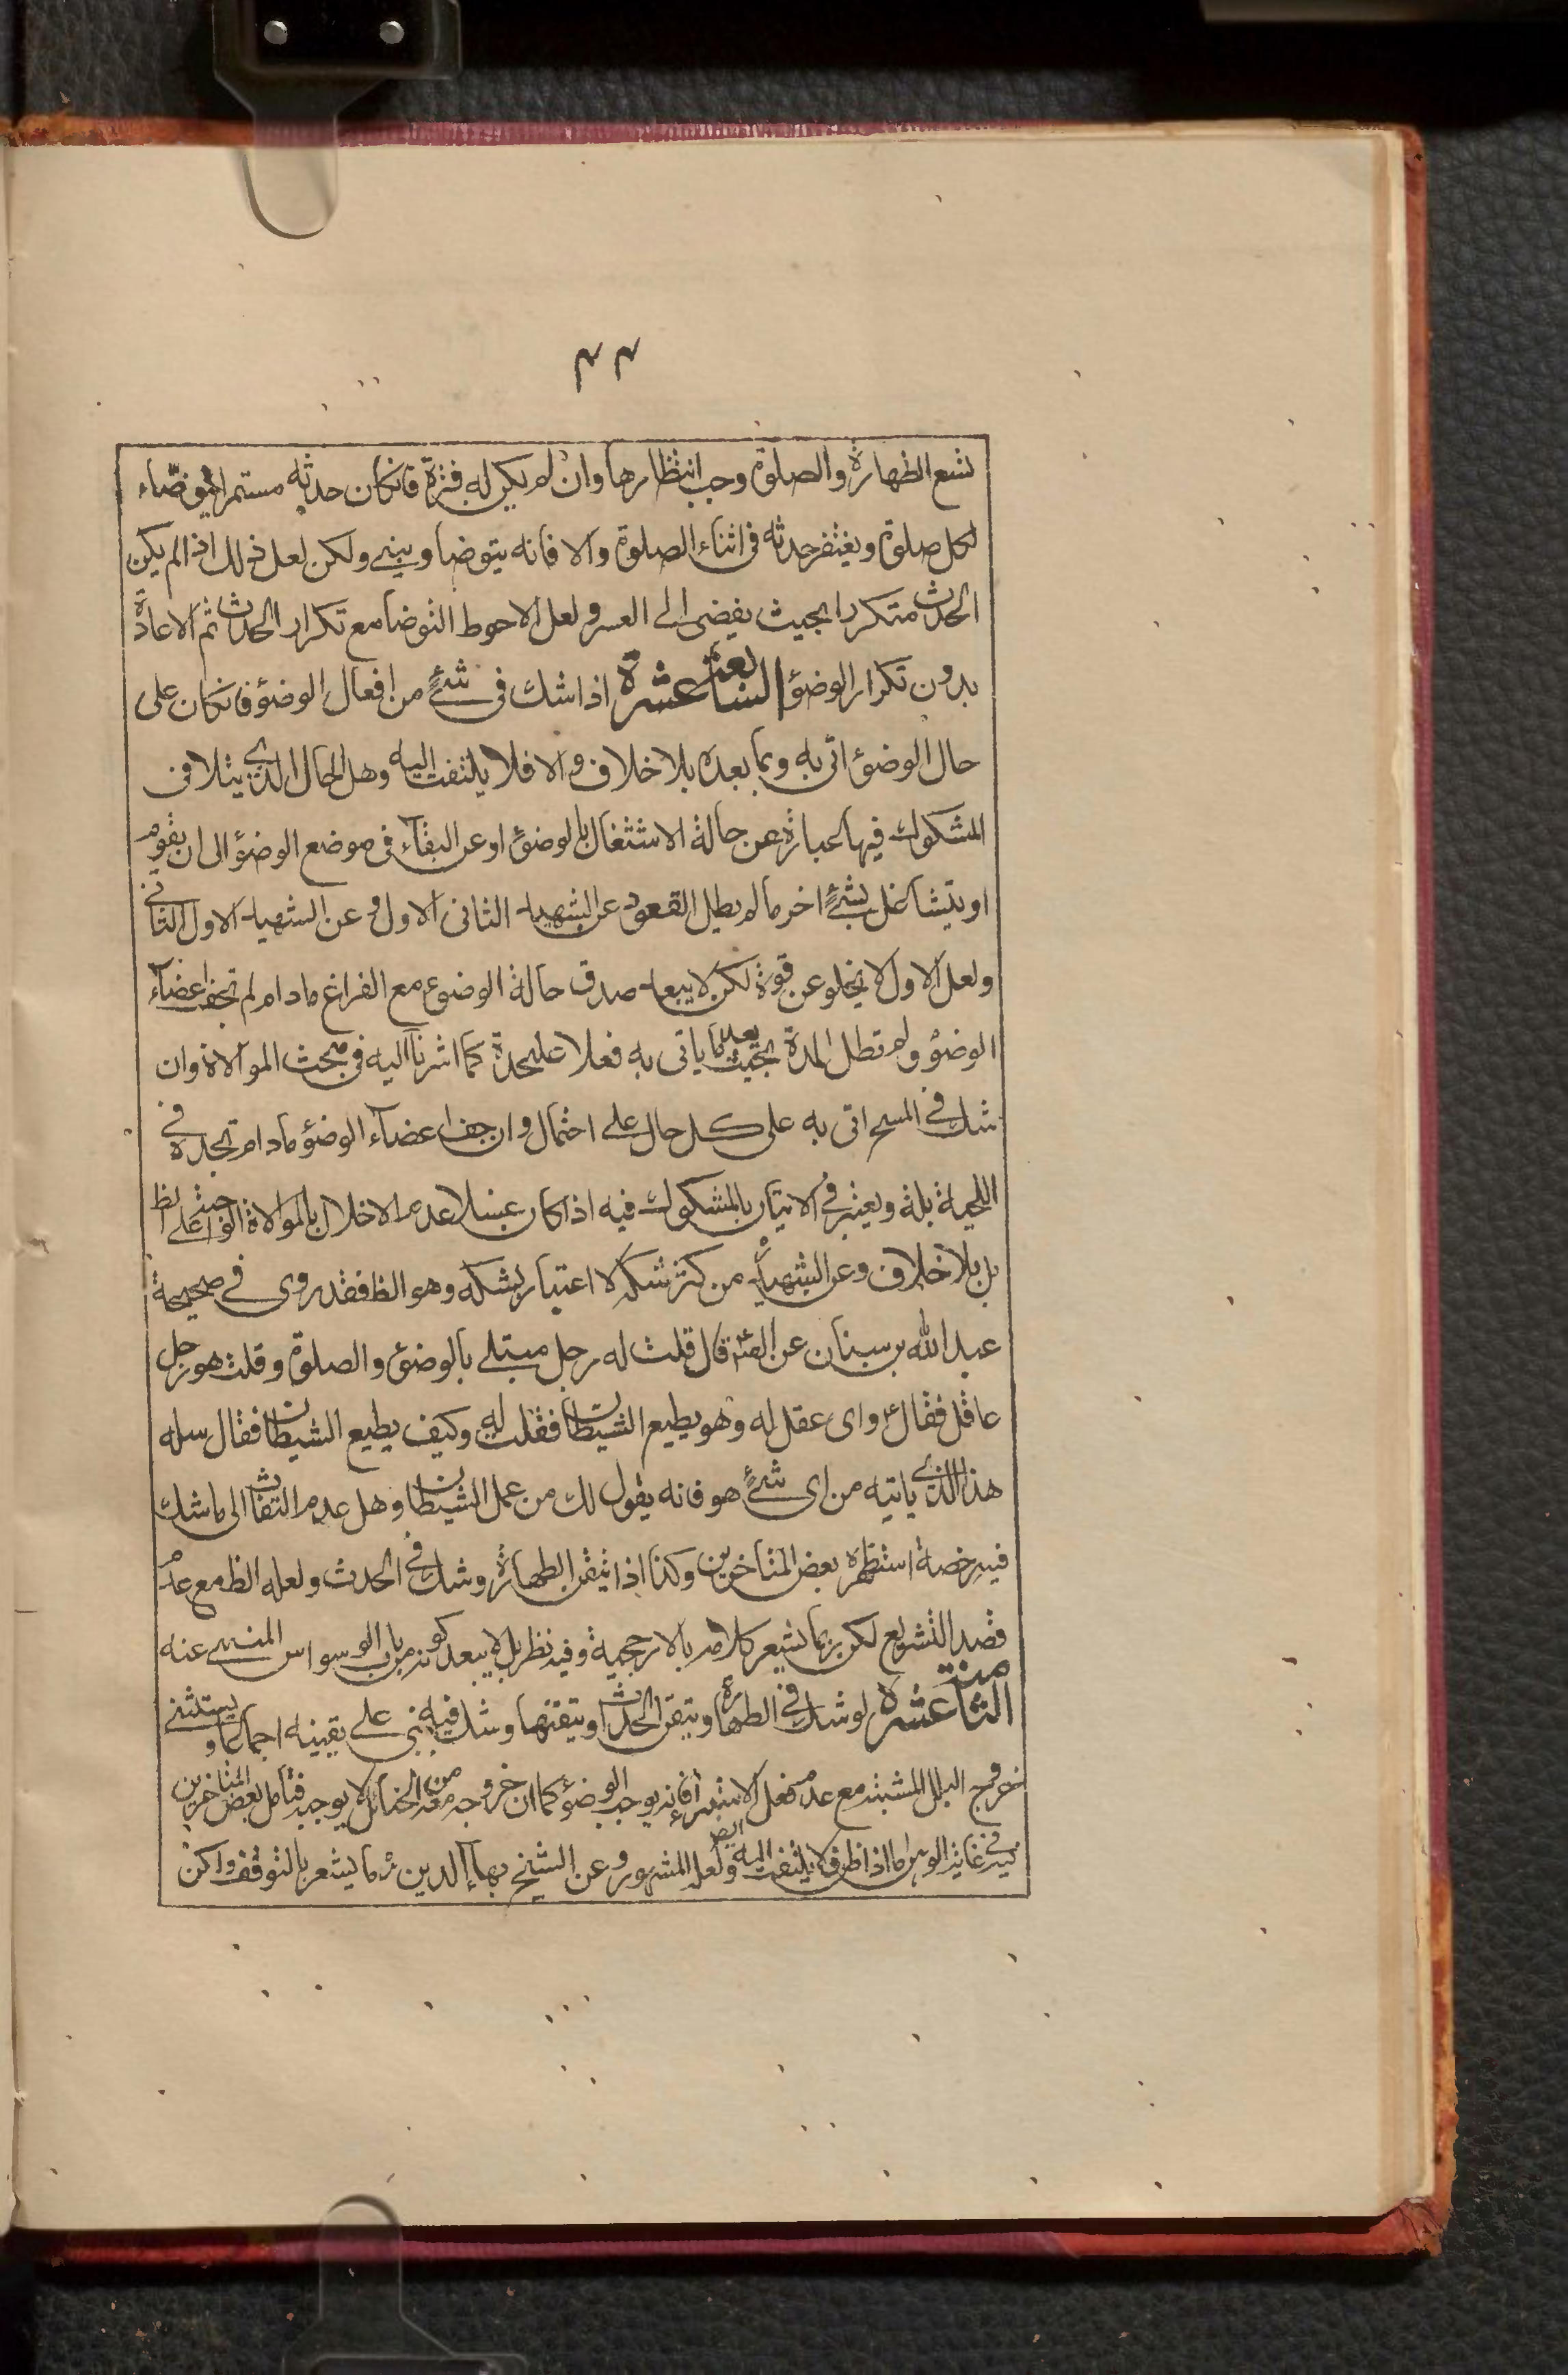 ٣٣
تسع الطهارة والصلوة وجب انتظارها وان لم يكن له فترة فانكان حدثه مستمرا فيتوضاء
لكل صلوة ويغتفر حدثه فى اثناء الصلوة والا فانه يتوضا ويبنى ولكن لعل ذلك اذا لم يكن
الحدث متكررا بحيث يفضى الى العسر ولعل الاحوط التوضأ مع تكرار الحدث ثم الاعادة
بدون تكرار الوضؤ السابعة عشرة اذا شك فى شئ من افعال الوضؤ فانكان على
حال الوضؤ اتى به وبما بعده بلا خلاف والا فلا يلتفت اليه وهل الحال الذى يتلافى
المشكوك فيها عبارة عن حالة الاشتغال بالوضؤ او عن البقاء فى موضع الوضؤ الى ان يقوم
او يتشاغل بشئ اخر ما لم يطل القعود عن الشهيد الثانى الاول وعن الشهيد الاول الثانى
ولعل الاول لا يخلو عن قوة لكن لا يبعد صدق حالة الوضوء مع الفراغ مادام لم تجف اعضاء
الوضؤ ولم تطل المدة بحيث يعد ما ياتى به فعلا عليحدة كما اشرنا اليه فى مبحث الموالاة وان
شك فى المسح اتى به على كل حال على احتمال وان جف اعضاء الوضؤ مادام تجد فى
اللحية بلة ويعتبر فى الاتيان بالمشكوك فيه اذا كان غسلا عدم الاخلال بالموالاة الواجبة على الظ
بل بلا خلاف وعن الشهيد من كثر شكه لا اعتبار بشكه وهو الظ فقد روى فى صحيحة
عبد الله بن سنان عن الصم قال قلت له رجل مبتلى بالوضؤ والصلوة وقلت هو رجل
عاقل فقال ع واى عقل له وهو يطيع الشيطان فقلت له وكيف يطيع الشيطان فقال سله
هذا الذى ياتيه من اى شئ هو فانه يقول لك من عمل الشيطان وهل عدم التفات الى ما شك
فيه رخصة استظهره بعض المتاخرين وكذا اذا تيقن الطهارة وشك فى الحدث ولعله الظ مع عدم
قصد التشريع لكن ربما يشعر كلامه بالارجحية وفيه نظر بل لا يبعد كونه من باب الوسواس المنهى عنه
الثامنة عشرة لو شك فى الطهارة وتيقن الحدث او تيقنها وشك فيه بنى على يقينه اجماعا ويستثنى
خروج البلل المشتبه مع عدم فعل الاستبراء فانه يوجب الوضؤ كما ان خروجه من بعد الختان لا يوجبه فتامل بعض المتاخرين
فيه فى غاية الوهن اما اذا ظن فلا يلتفت اليه ايض ولعله المشهور وعن الشيخ بهاء الدين ره ما يشعر بالتوقف ولكن